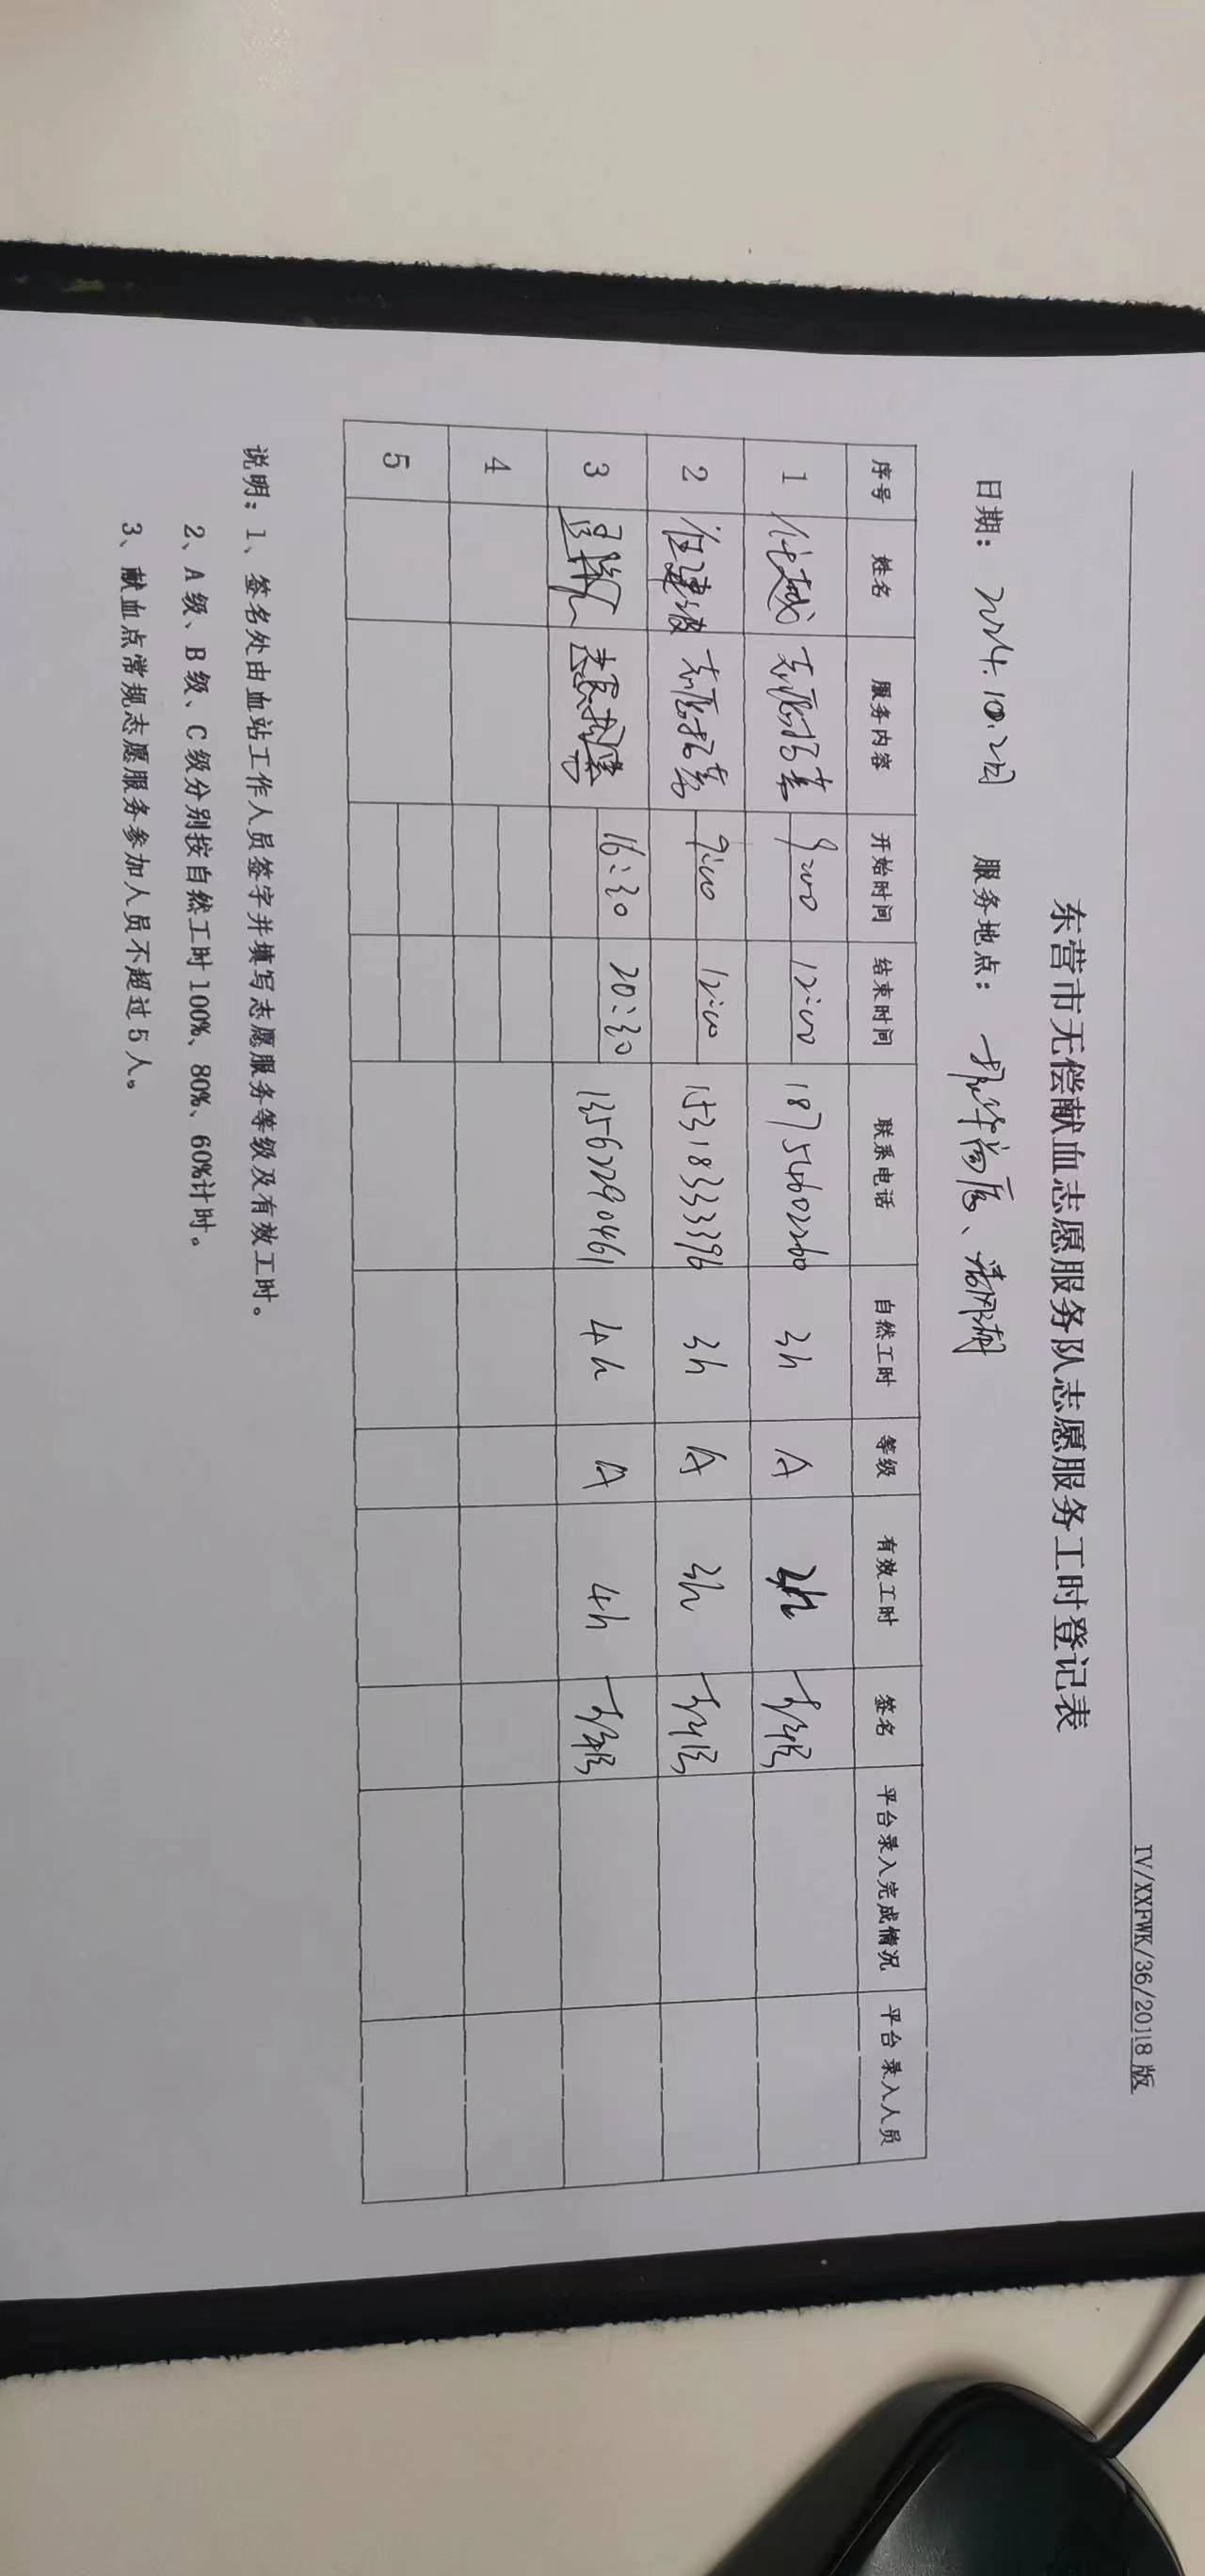 IV/XXFWK/36/20118版
东营市无偿献血志愿服务队志愿服务工时登记表
日期: 2024.10.2 服务地点:
序号 姓名 服务内容 开始时间 结束时间 联系电话 自然工时 等级 有效工时 签名 平台录入完成情况 平台录入人员
1 志愿招募 9:00 12:00 18754602260 3h A 3h
2 任建波 志愿招募 9:00 12:00 15318333396 3h A 3h
3 16:30 20:30 13562290461 4h A 4h
4
5
说明: 1、签名处由血站工作人员签字并填写志愿服务等级及有效工时。
2、A级、B级、C级分别按自然工时100%、80%、60%计时。
3、献血点常规志愿服务参加人员不超过5人。